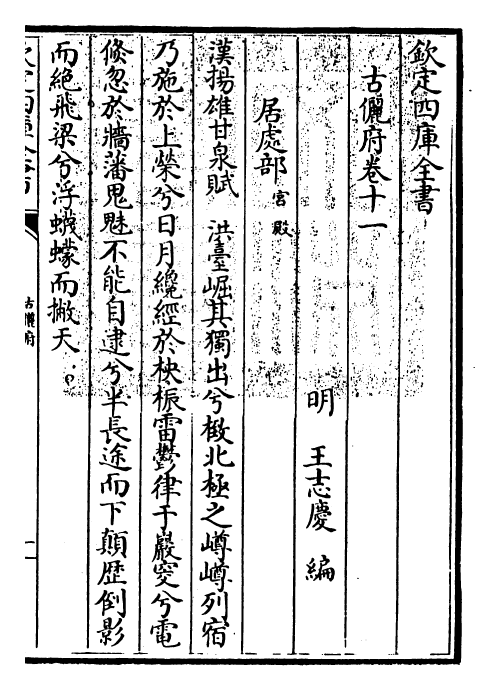 欽定四庫全書
古儷府卷十一
明 王志慶 編
居處部 宮殿
漢揚雄甘泉賦 洪臺崛其獨出兮㨖北極之嶟嶟列宿
乃施於上榮兮日月纔經於柍桭雷鬱律于巖窔兮電
倐忽於牆藩鬼魅不能自逮兮半長途而下顛歴倒影
而絶飛梁兮浮蠛蠓而撇天
古儷府
一